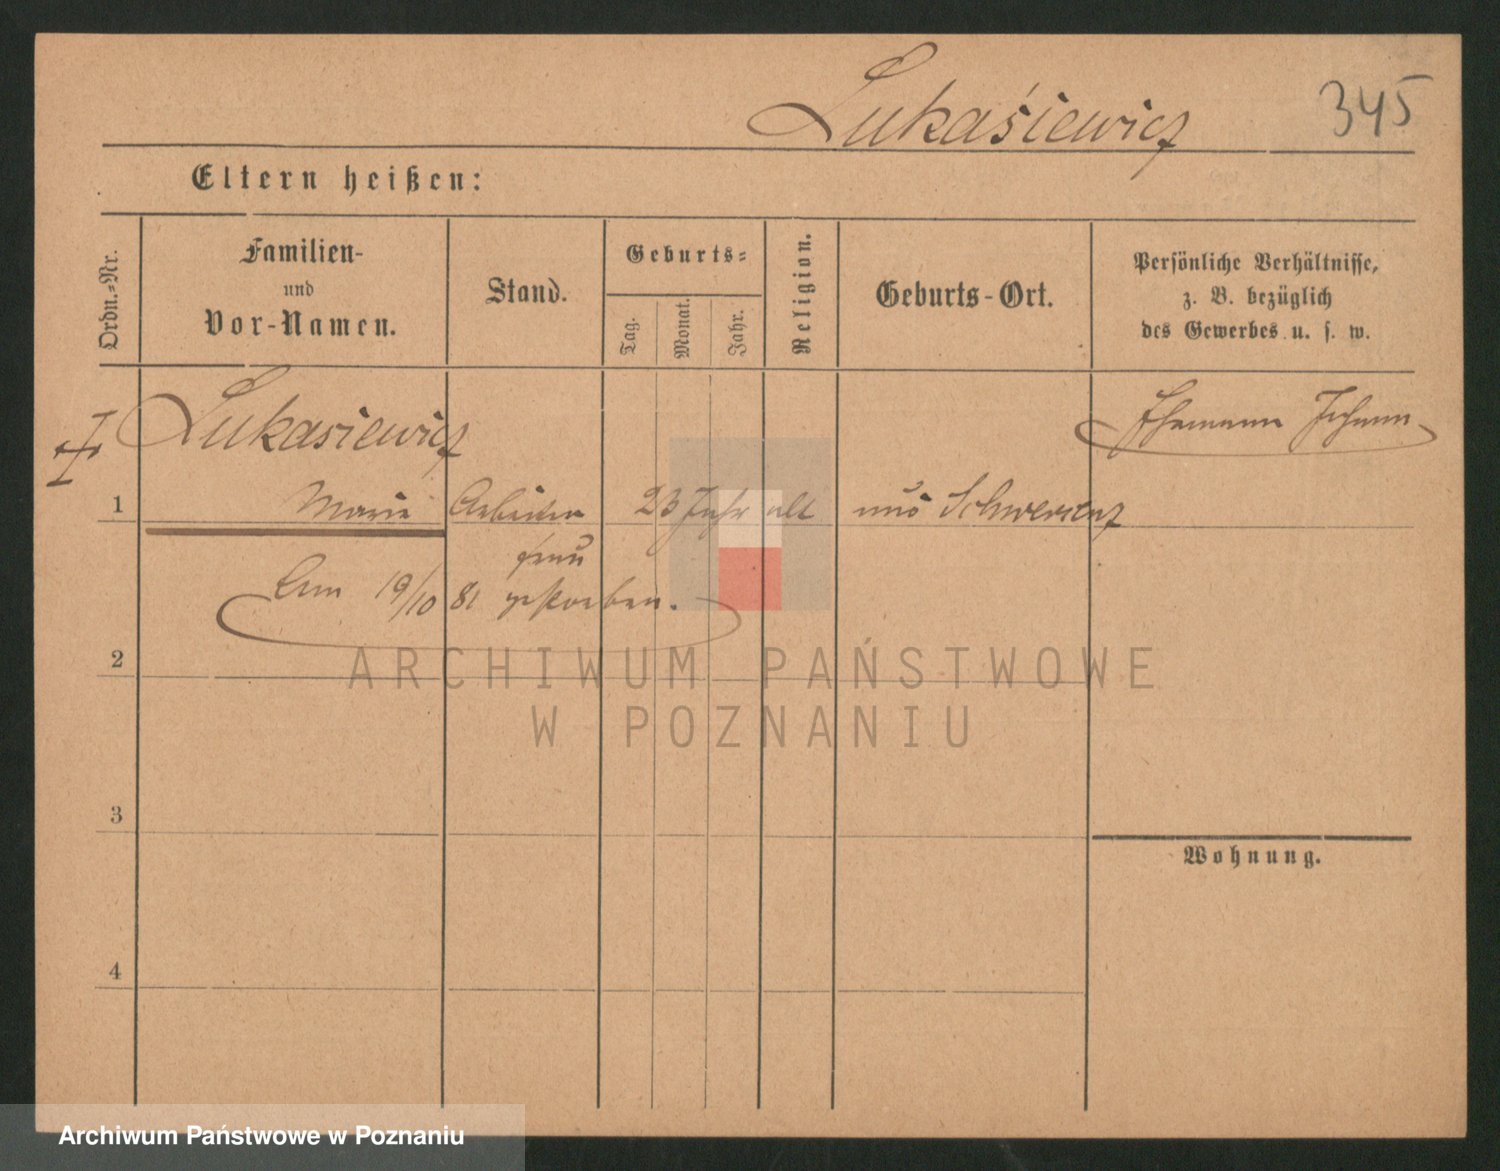 Lukaśiewicz 345
Eltern heißen:
Ordn.-Nr.
Familien-
und
Vor-Namen.
Stand.
Geburts-
Tag.
Monat.
Jahr.
Religion.
Geburts-Ort.
Persönliche Verhältnisse,
z. B. bezüglich
des Gewerbes u. s. w.
Lukasiewicz
Ehemann Johann
1 Marie Arbeiter 23 Jahr alt aus Schwersenz
frau
Am 19/10 81 gestorben.
2
ARCHIWUM PAŃSTWOWE
W POZNANIU
3
Wohnung.
4
Archiwum Państwowe w Poznaniu